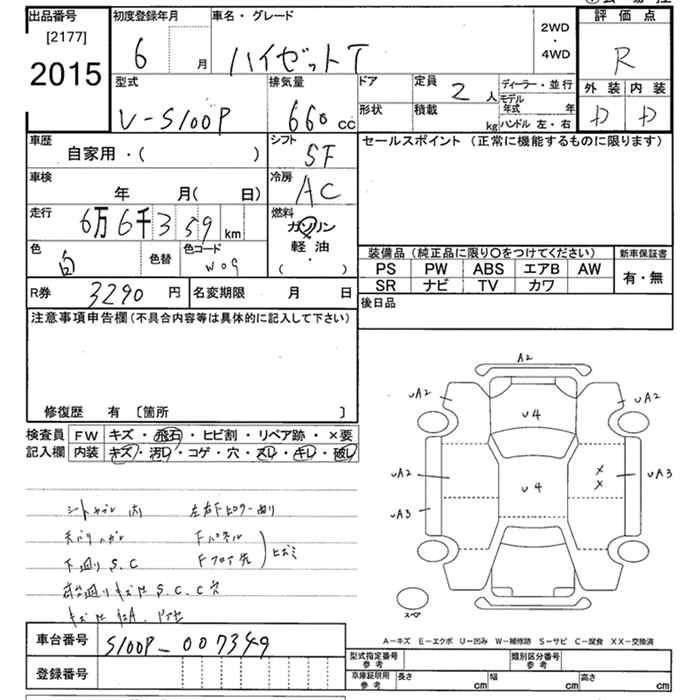 出品番号
[2177]
2015
初度登録年月
6 月
車名・グレード
ハイゼットT
2WD
・
4WD
評価点
R
外装 内装
D D
型式
V-S100P
排気量
660 cc
ドア
定員 2 人
ディーラー・並行
形状
積載 kg
モデル年式 年
ハンドル 左・右
車歴
自家用・( )
シフト
SF
セールスポイント (正常に機能するものに限ります)
車検
年 月( 日)
冷房
AC
走行
6万6千359 km
燃料
ガソリン
軽油
( )
色
白
色替
色コード
W09
装備品 (純正品に限り○をつけてください)
PS PW ABS エアB AW
SR ナビ TV カワ
新車保証書
有・無
R券 3290 円
名変期限 月 日
後日品
注意事項申告欄 (不具合内容等は具体的に記入して下さい)
修復歴 有 〔箇所 〕
検査員 FW キズ・飛石・ヒビ割・リペア跡・×要
記入欄 内装 キズ・汚し・コゲ・穴・スレ・キレ・破し
A2
uA2 uA2
u4
uA2 u4 × × uA3
uA3
スペア
下廻りS.C
A-キズ E-エクボ U-凹み W-補修跡 S-サビ C-腐食 XX-交換済
車台番号 S100P-007349
登録番号
型式指定番号 参考
類別区分番号 参考
車庫証明用 参考
長さ cm
幅 cm
高さ cm